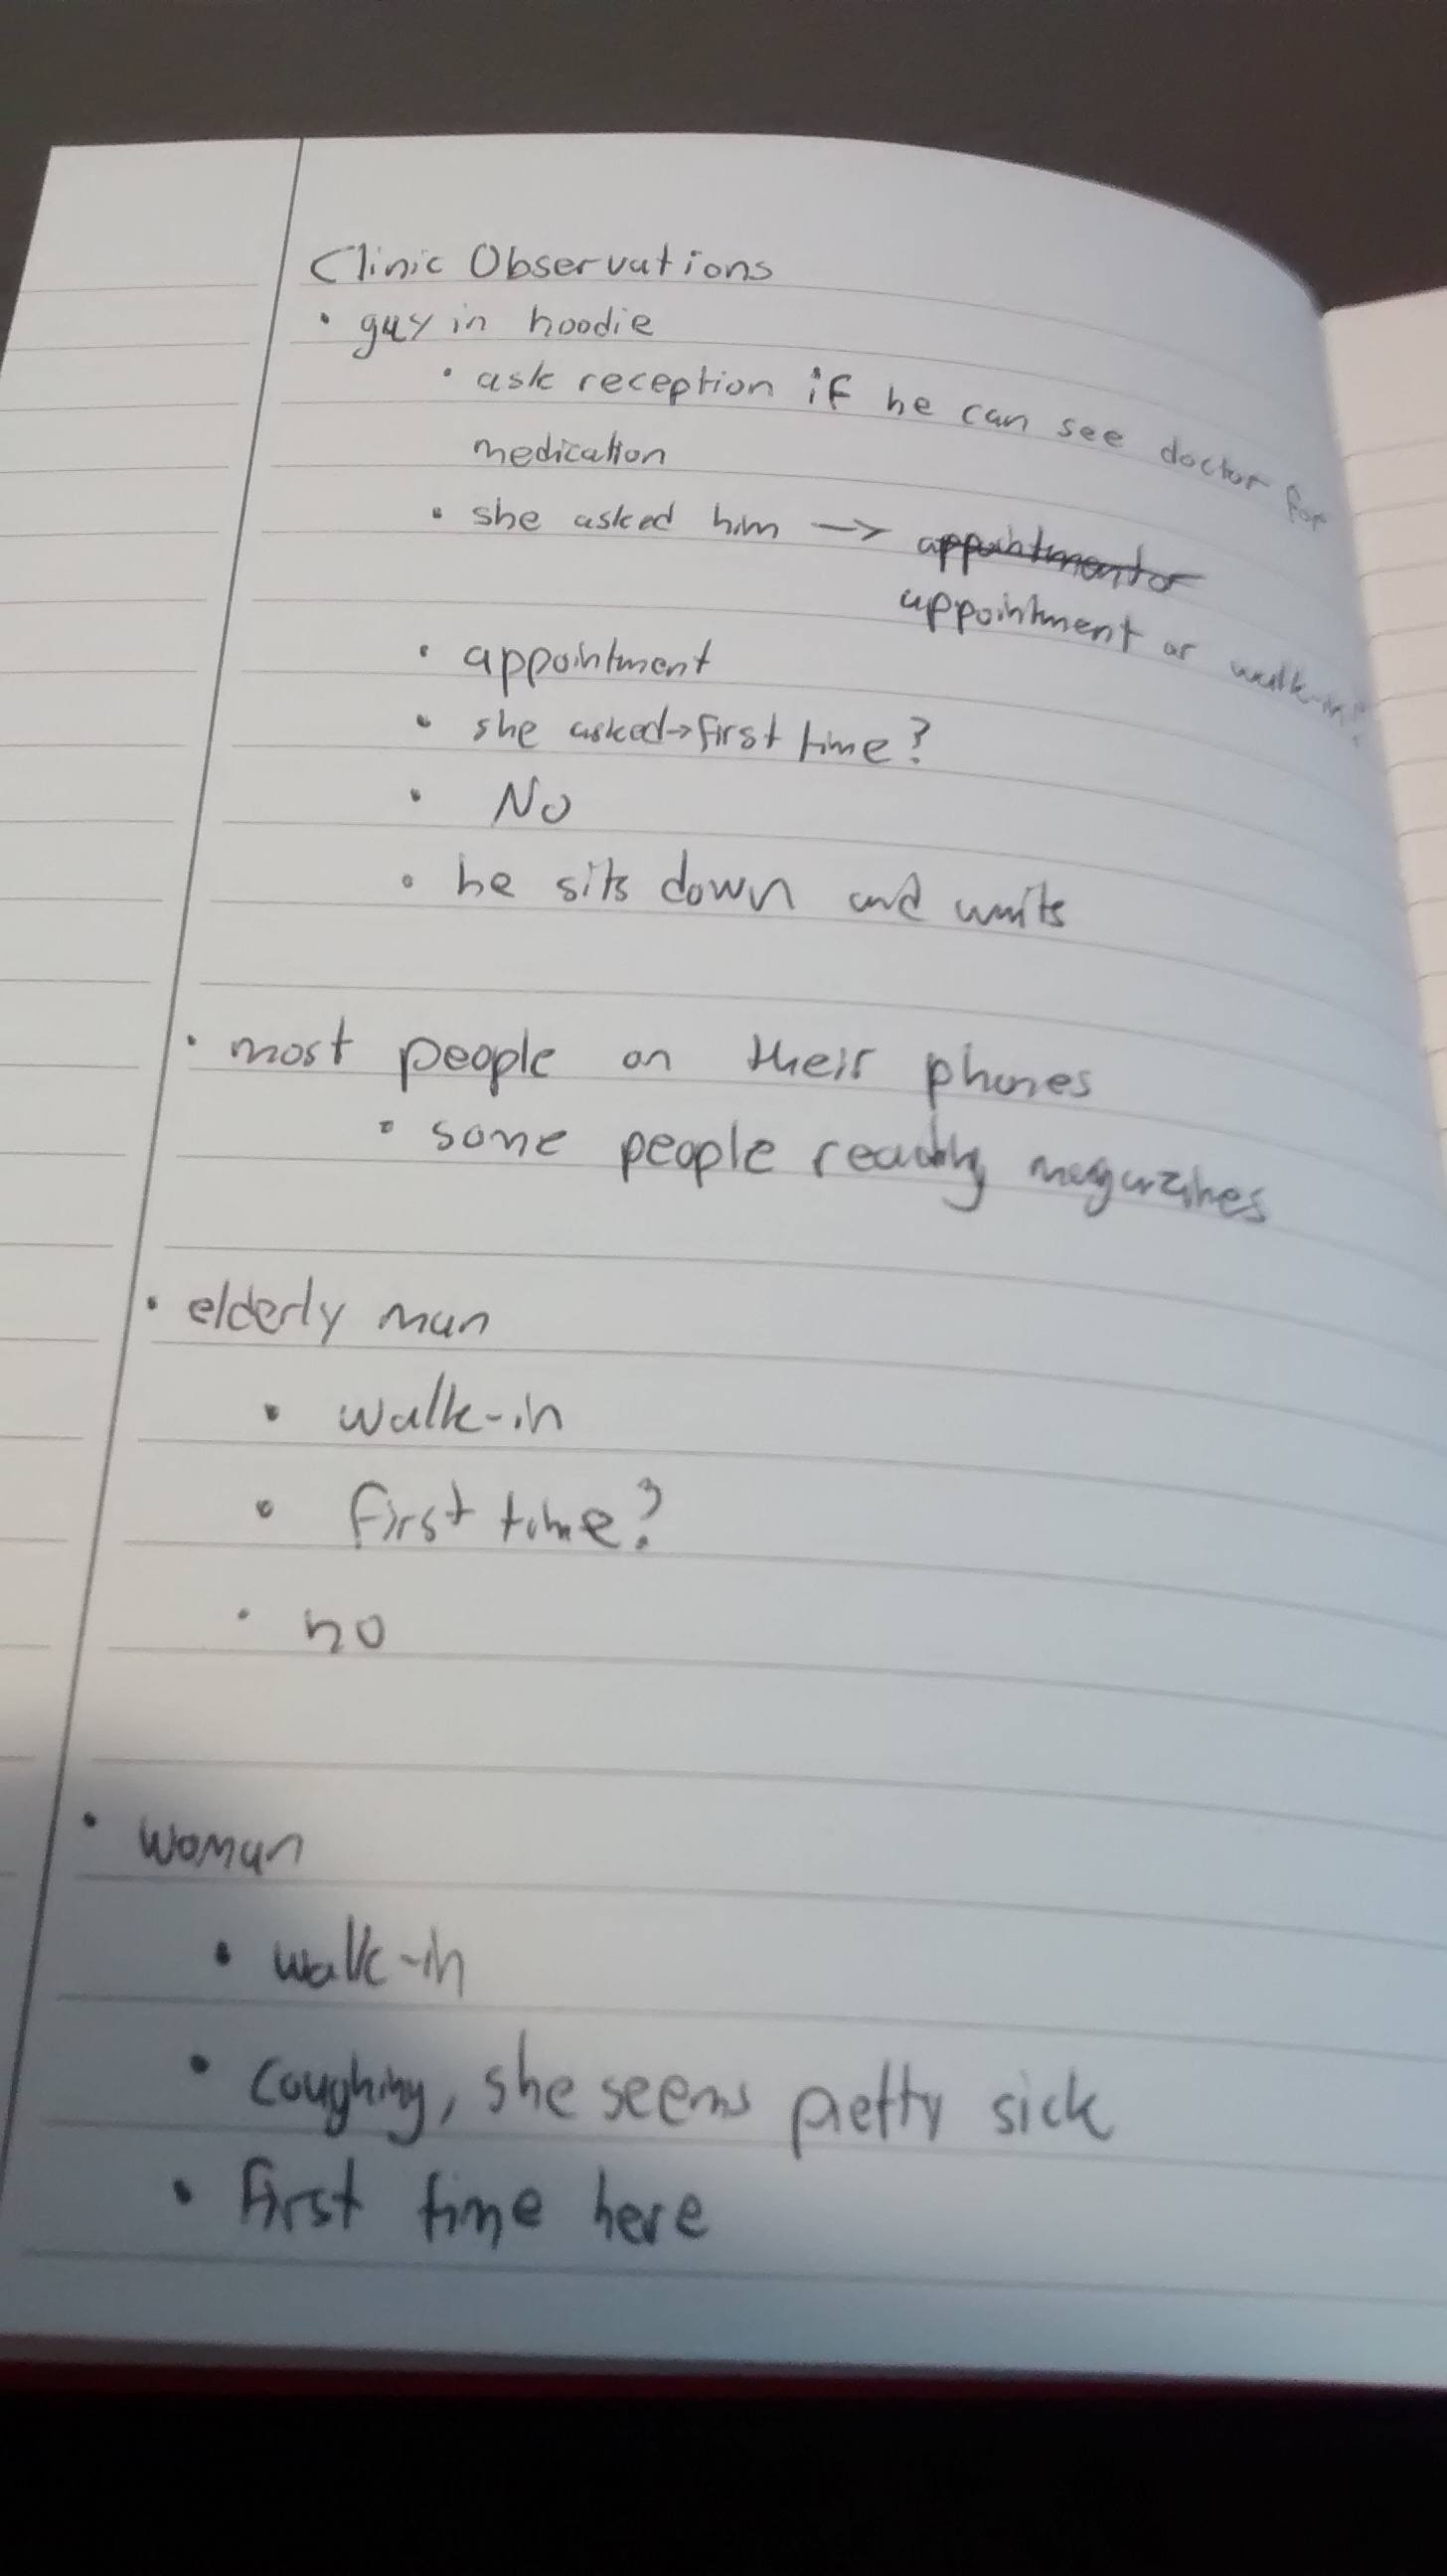 Clinic Observations
• guy in hoodie
• ask reception if he can see doctor for
medication
• she asked him → appointment or
appointment or walk-in?
• appointment
• she asked→first time?
• No
• he sits down and waits
• most people on their phones
• some people reading magazines
• elderly man
• walk-in
• first time?
• no
• woman
• walk-in
• coughing, she seems pretty sick
• first time here